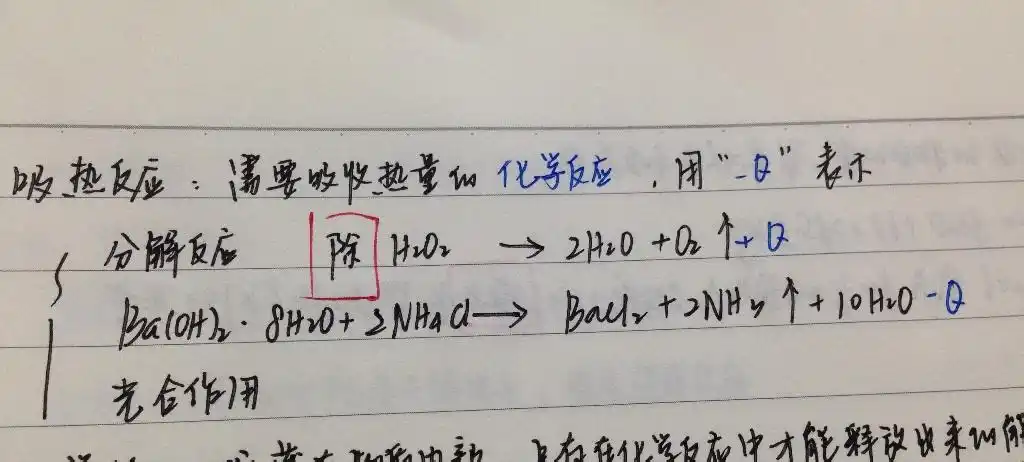 吸热反应：需要吸收热量的化学反应，用“-Q”表示
分解反应 除 H₂O₂ → 2H₂O + O₂ ↑ + Q
Ba(OH)₂·8H₂O + 2NH₄Cl → BaCl₂ + 2NH₃ ↑ + 10H₂O - Q
光合作用
在化学反应中才能释放出来的